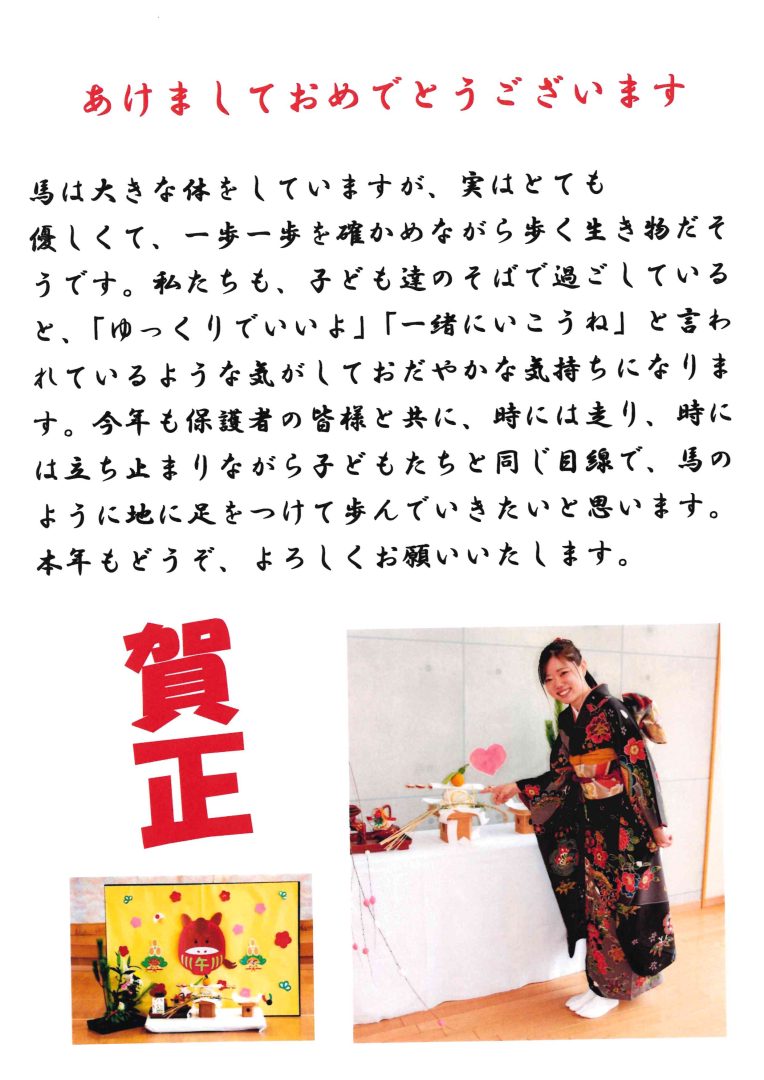 あけましておめでとうございます
馬は大きな体をしていますが、実はとても
優しくて、一歩一歩を確かめながら歩く生き物だそ
うです。私たちも、子ども達のそばで過ごしている
と、「ゆっくりでいいよ」「一緒にいこうね」と言わ
れているような気がしておだやかな気持ちになりま
す。今年も保護者の皆様と共に、時には走り、時に
は立ち止まりながら子どもたちと同じ目線で、馬の
ように地に足をつけて歩んでいきたいと思います。
本年もどうぞ、よろしくお願いいたします。
賀
正
午